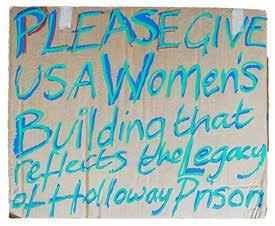 PLEASE GIVE
US A WOMEN'S
Building that
reflects the Legacy
of Holloway Prison